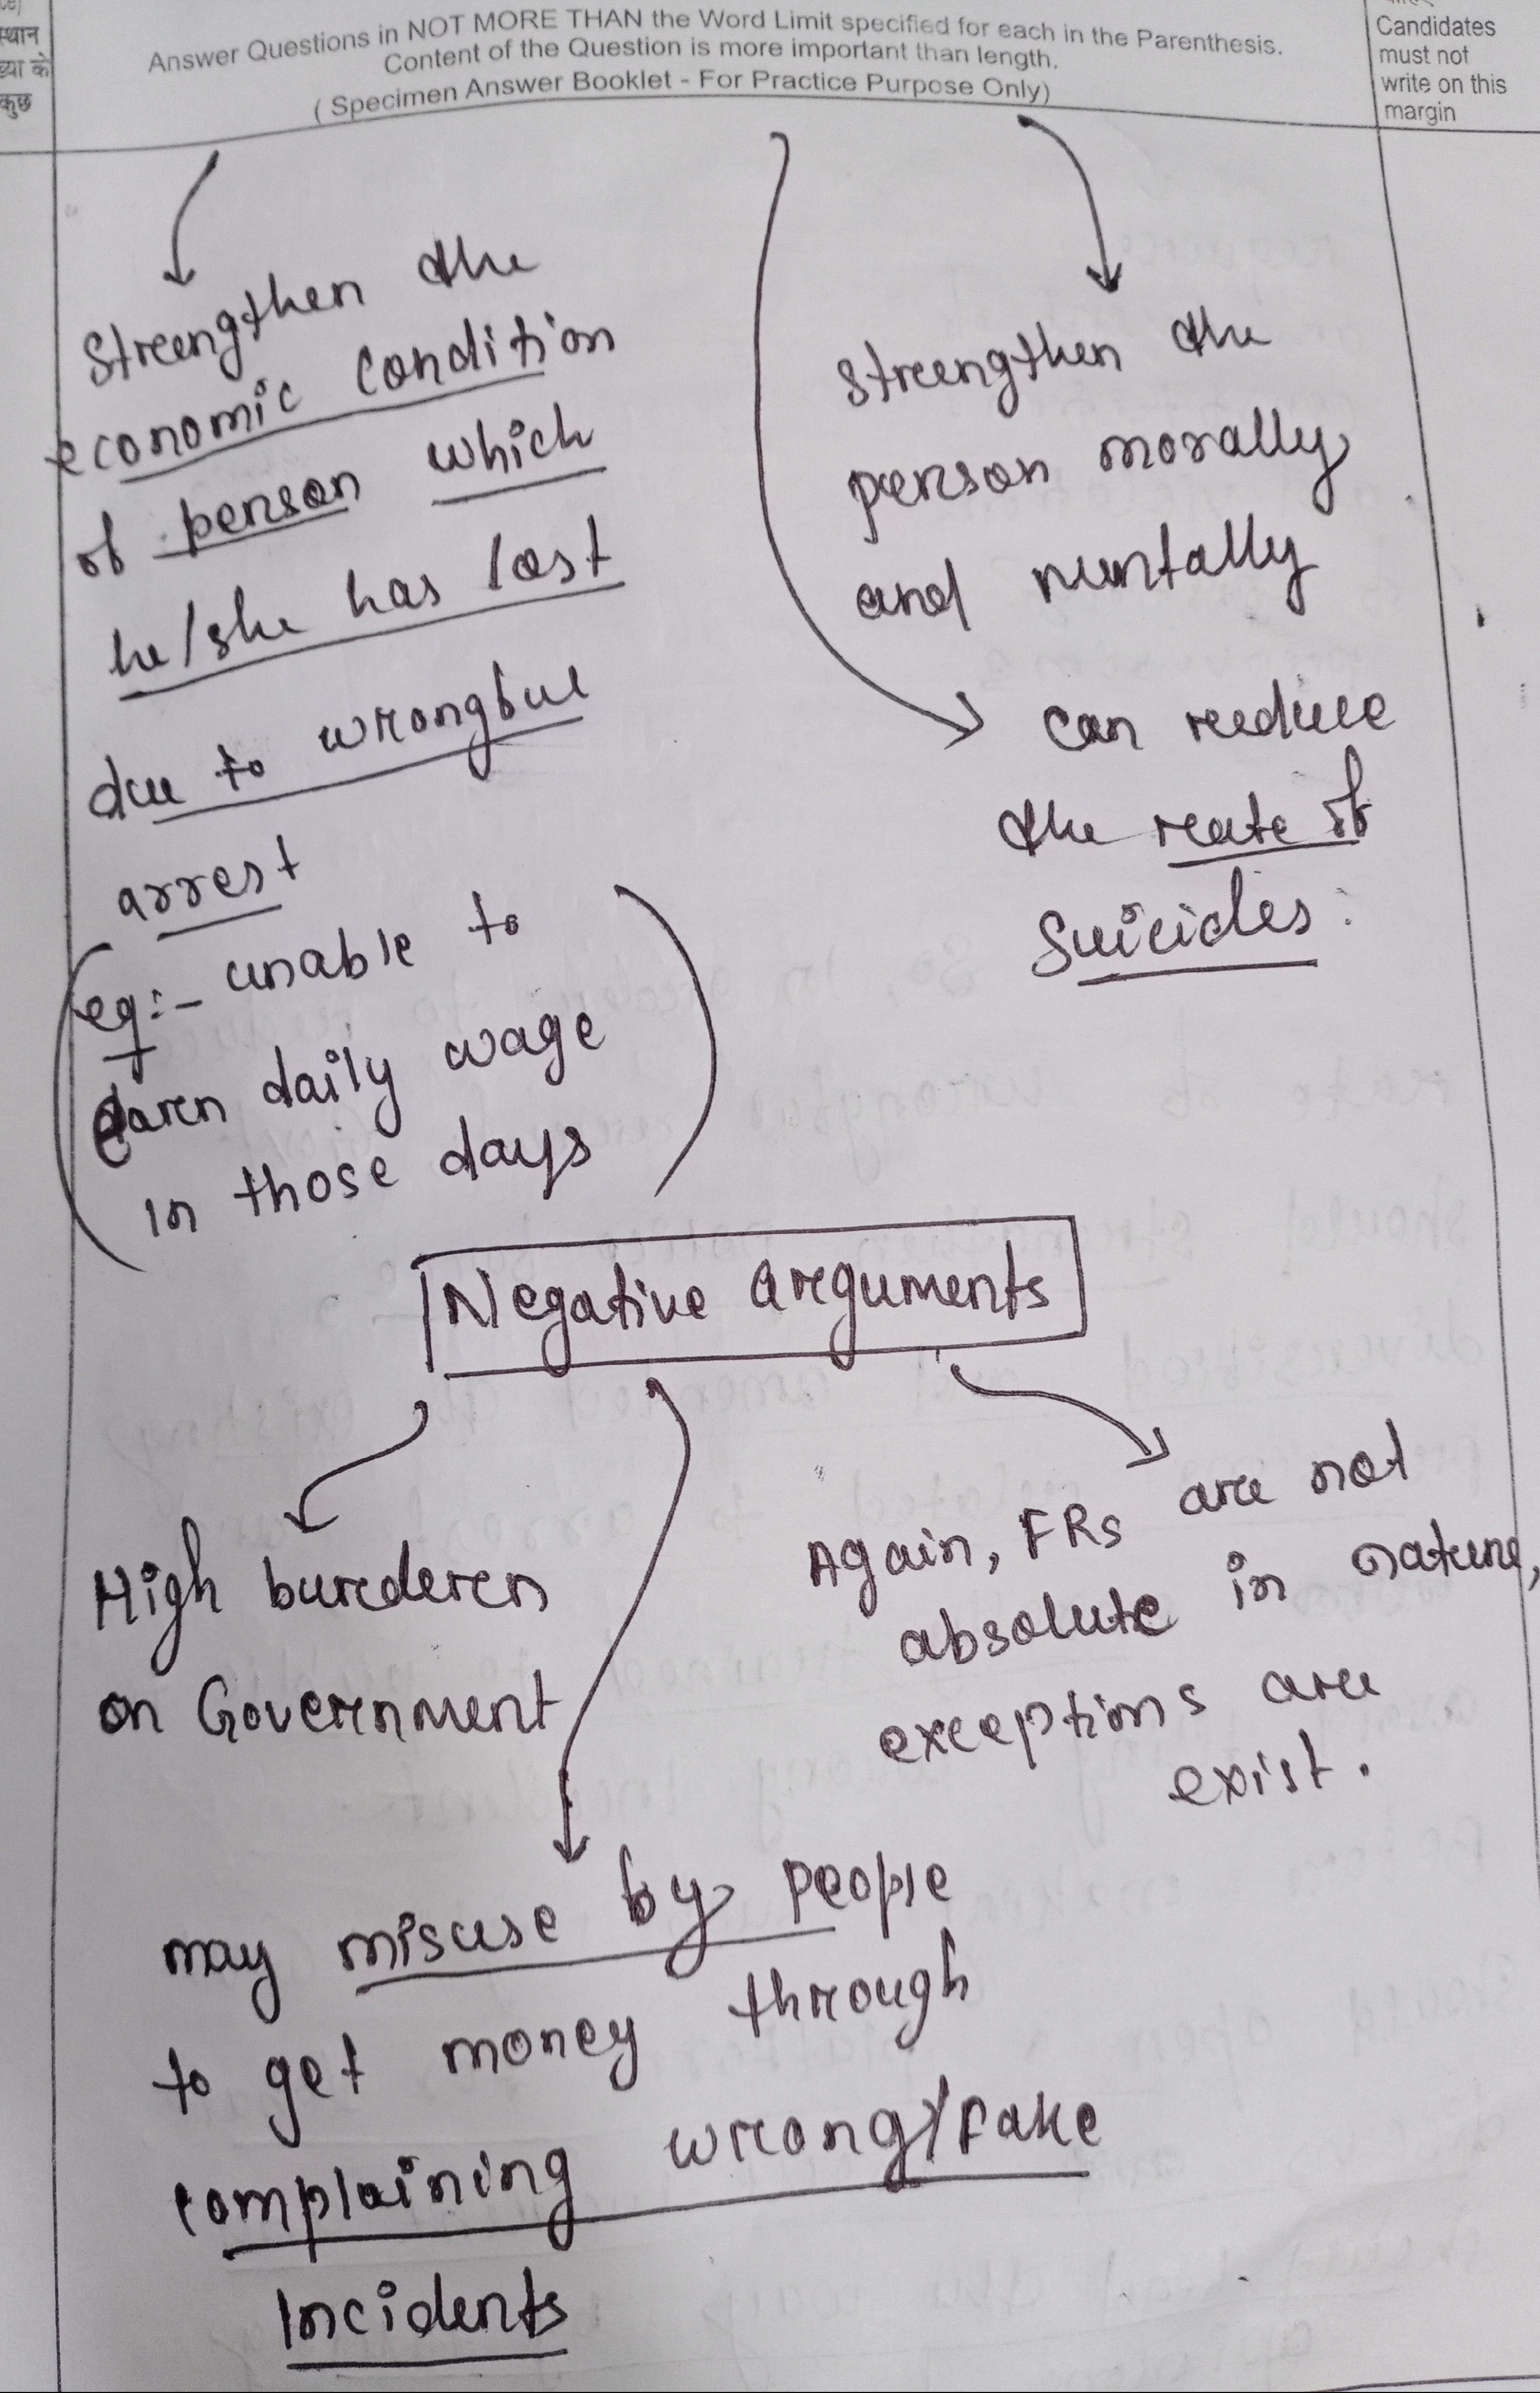 स्थान
कुछ
Answer Questions in NOT MORE THAN the Word Limit specified for each in the Parenthesis.
Content of the Question is more important than length.
( Specimen Answer Booklet - For Practice Purpose Only)
Candidates
must not
write on this
margin
Strengthen the
economic condition
of person which
he/she has lost
due to wrongful
arrest
(eg:- unable to
earn daily wage
in those days)
strengthen the
person morally
and mentally
can reduce
the rate of
Suicides.
Negative arguments
High burderen
on Government
may misuse by people
to get money through
complaining wrong/fake
Incidents
Again, FRs are not
absolute in nature,
exceptions are
exist.